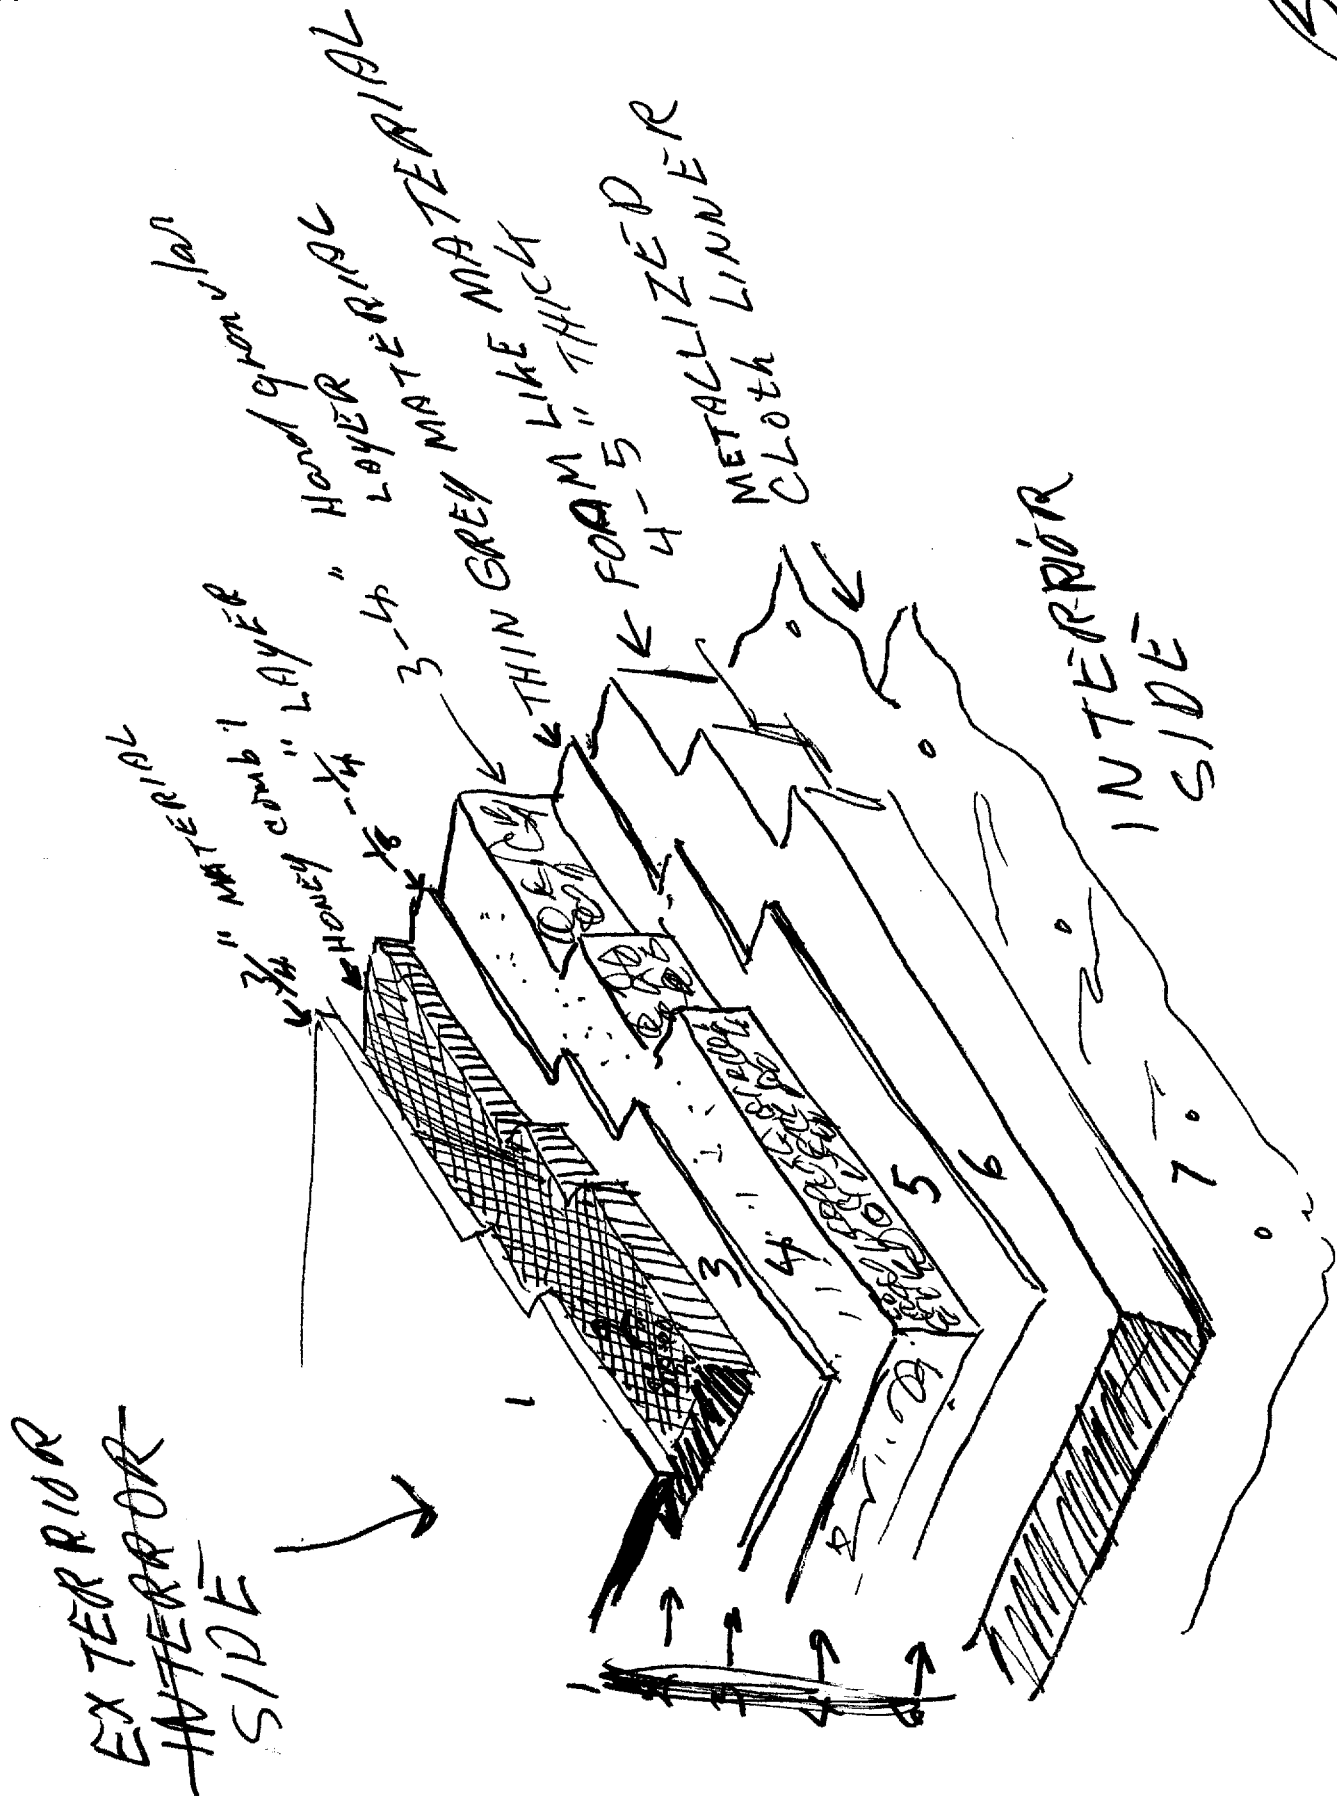 EXTERRIOR
INTERROR
SIDE
3/4 " MATERIAL
HONEY comb LAYER
1/8 - 1/4 " Hard granular
LAYER
3-4 " MATERIAL
THIN GREY MATERIAL
FOAM LIKE MAT
4-5" THICK
METALLIZED
CLOth LINNER
INTERRIOR
SIDE
1
3
4
5
6
7
1
2
3
4